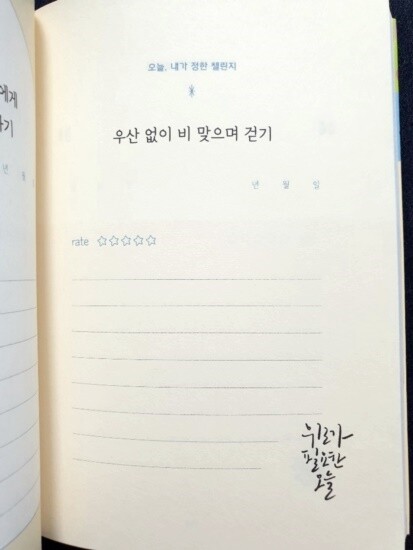 에게
기
년 월
오늘, 내가 정한 챌린지
우산 없이 비 맞으며 걷기
년 월 일
rate ☆☆☆☆☆
위로가
필요한
오늘